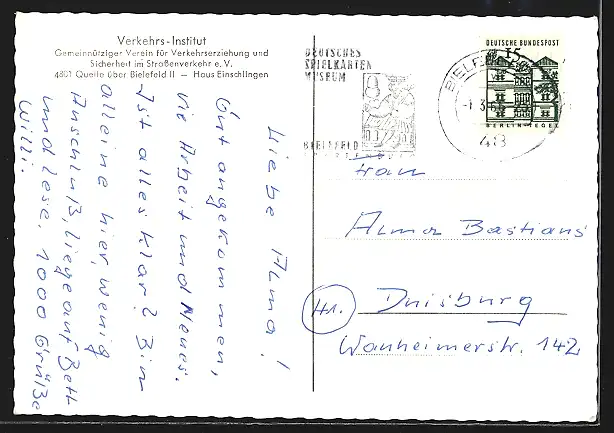 Verkehrs-Institut
Gemeinnütziger Verein für Verkehrserziehung und
Sicherheit im Straßenverkehr e. V.
4801 Quelle über Bielefeld II — Haus Einschlingen
Liebe Alma!
Gut angekommen,
die Arbeit und Neues.
Ist alles klar? Bin
alleine hier, wenig
Anschluß, liege auf Bett
und lese. 1000 Grüße
Willi.
DEUTSCHES
SPIELKARTEN
MUSEUM
BIELEFELD
BIELEFELD
48
DEUTSCHE BUNDESPOST
15
BERLIN-TEGEL
Frau
Alma Bastians
41. Duisburg
Wanheimerstr. 142